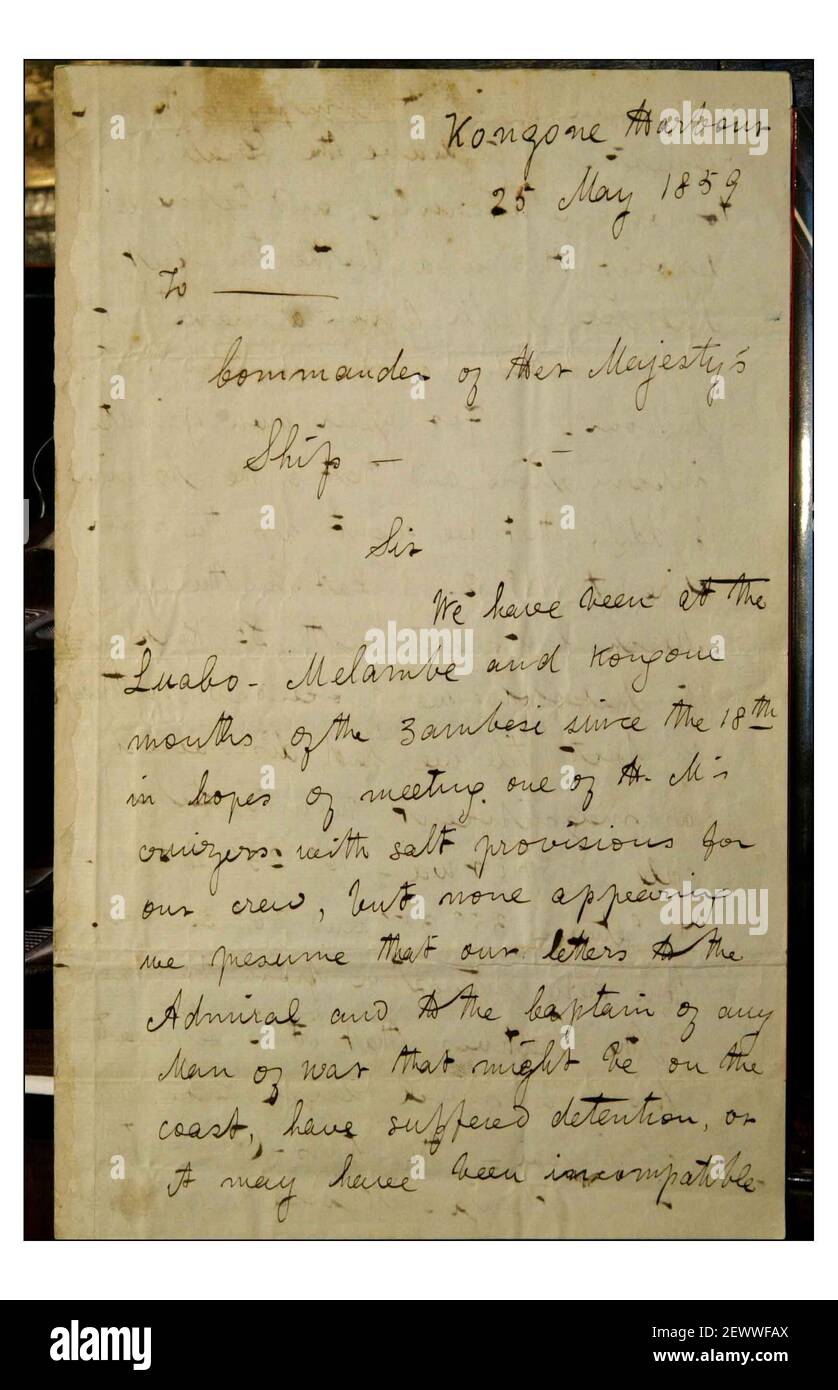 Kongone Harbour
25 May 1859
To ———
Commander of Her Majesty's
Ship — —
Sir
We have been at the
Luabo - Melambe and Kongone
mouths of the Zambesi since the 18th
in hopes of meeting one of H. M's
cruizers with salt provisions for
our crew, but none appearing
we presume that our letters to the
Admiral and to the Captain of any
Man of war that might be on the
coast, have suffered detention, or
it may have been incompatible
alamy
alamy
alamy
a a
a a
a a
a a
a a
a a
a a
alamy
Image ID: 2EWWFAX
www.alamy.com